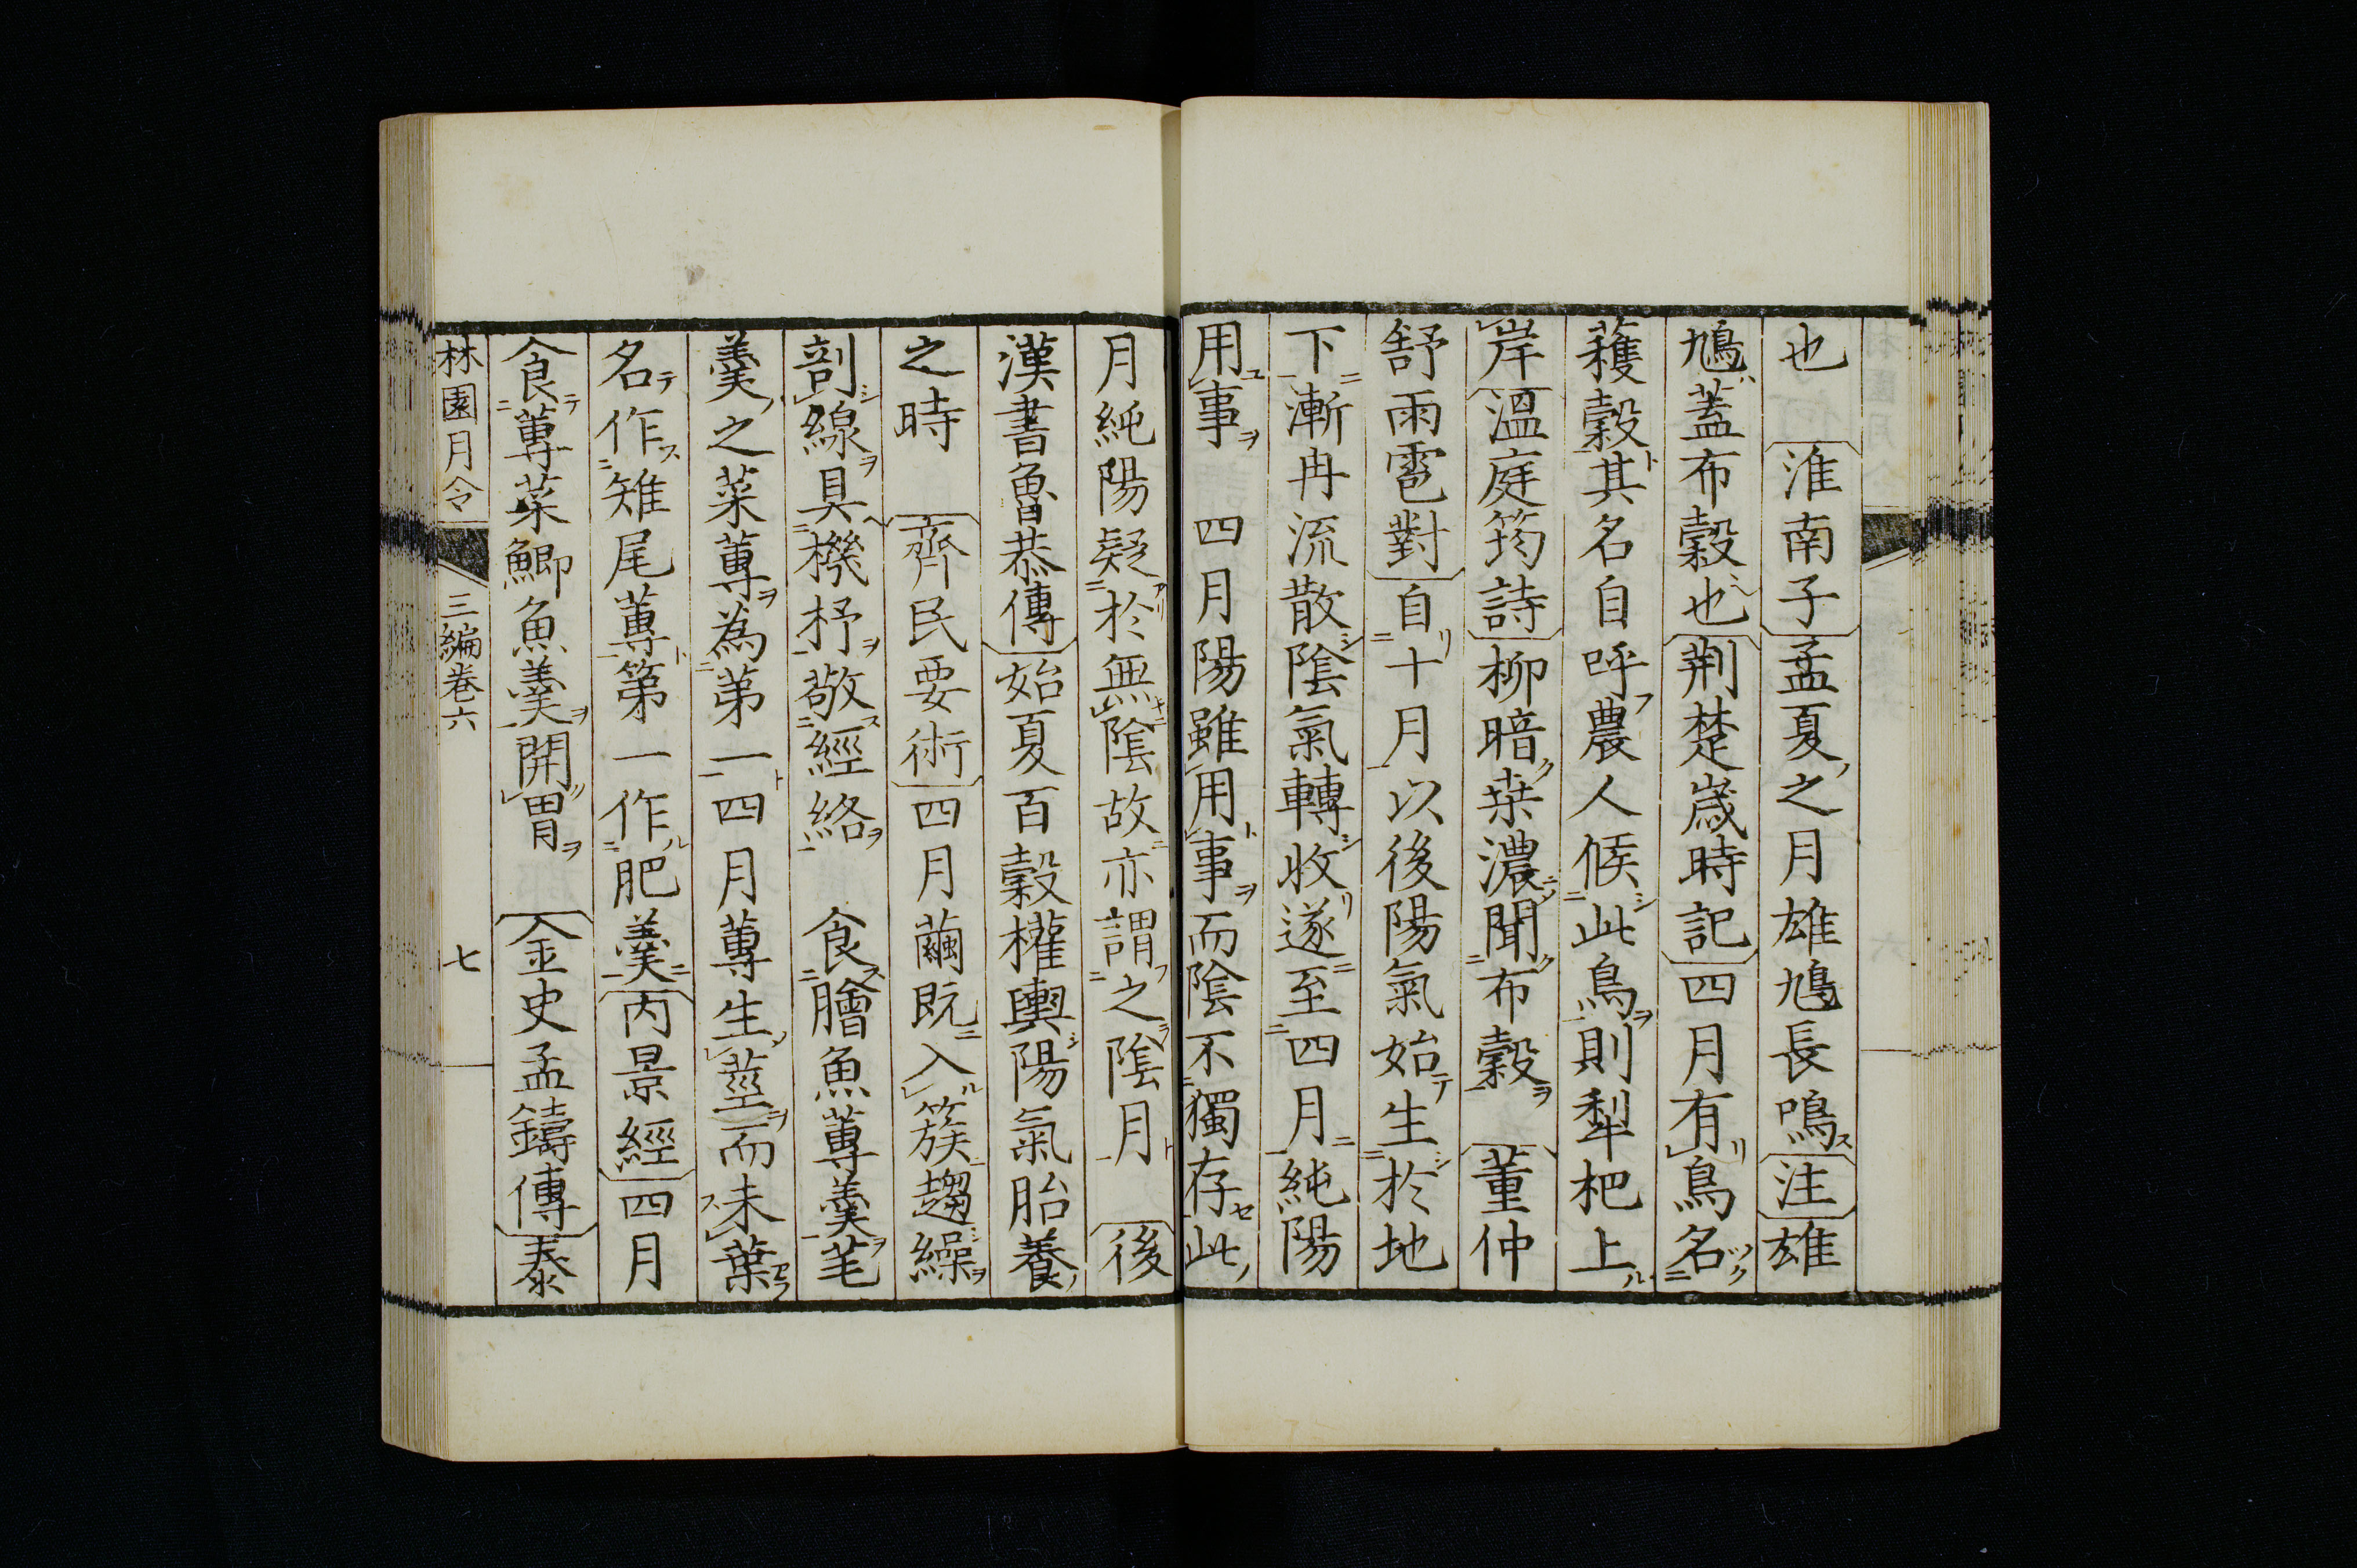 也　淮南子孟夏之月雄鳩長鳴注雄
鳩蓋布穀也荆楚歲時記四月有鳥名
穫穀其名自呼農人候此鳥則犁杷上
岸溫庭筠詩柳暗桒濃聞布穀　董仲
舒雨雹對自十月以後陽氣始生於地
下漸冉流散陰氣轉收遂至四月純陽
用事　四月陽雖用事而陰不獨存此
月純陽疑於無陰故亦謂之陰月　後
漢書魯恭傳始夏百穀權輿陽氣胎養
之時　齊民要術四月繭既入簇趨繰
剖線具機杼敬經絡　食膾魚蓴羹芼
羹之菜蓴為第一四月蓴生莖而未葉
名作雉尾蓴第一作肥羹丙景經四月
食蓴菜鯽魚羹開胃　金史孟鑄傳泰
林園月令　三編卷六　七